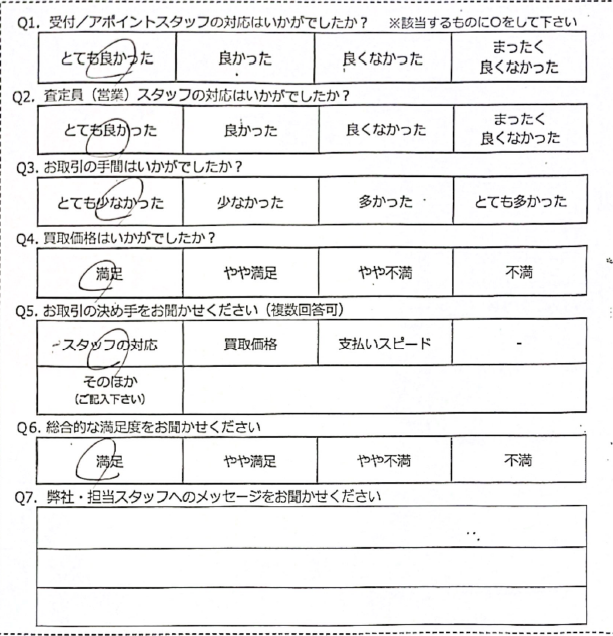 Q1. 受付／アポイントスタッフの対応はいかがでしたか？ ※該当するものに○をして下さい
とても良かった 良かった 良くなかった まったく
良くなかった
Q2. 査定員（営業）スタッフの対応はいかがでしたか？
とても良かった 良かった 良くなかった まったく
良くなかった
Q3. お取引の手間はいかがでしたか？
とても少なかった 少なかった 多かった とても多かった
Q4. 買取価格はいかがでしたか？
満足 やや満足 やや不満 不満
Q5. お取引の決め手をお聞かせください（複数回答可）
スタッフの対応 買取価格 支払いスピード -
そのほか
（ご記入下さい）
Q6. 総合的な満足度をお聞かせください
満足 やや満足 やや不満 不満
Q7. 弊社・担当スタッフへのメッセージをお聞かせください